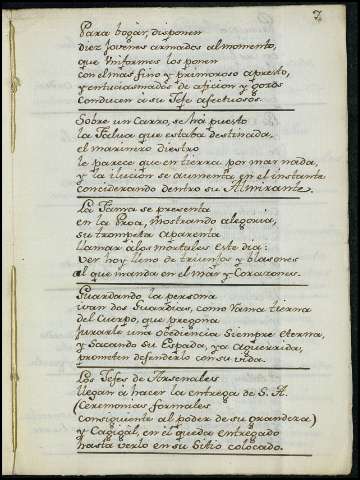 7
Para bogàr, disponen
diez jovenes armados al momento,
que Vniformes los ponen
con el mas fino y primoroso apresto,
y entuciasmados de aficion y gozo
conducen a su Jefe afectuosos.
Sobre un Carro, se há puesto
la Falua que estaba destinada,
el marinero diestro
le parece que en tierra por mar nada,
y la ilución se aumenta en el instante
Conciderando dentro su Almirante.
La Fama se presenta
en la Proa, mostrando alegoria,
su trompeta aparenta
llamar à los mortales este dia:
Ver hoy lleno de triunfos y blasones
al que manda en el Mar y Corazones.
Guardando la persona
ivan dos Guardias, como Rama tierna
del Cuerpo, que pregona
jurarle una obediencia Siempre eterna,
y Sacando su Espada, ya aguerrida,
prometen defenderlo con su vida.
Los Jefes de Arsenales
llegan a hacer la entrega de S. A.
(Ceremonias formales
consiguiente al poder de su grandeza)
y Cagigál, en él quedo entregado
hasta verlo en su Sitio colocado.